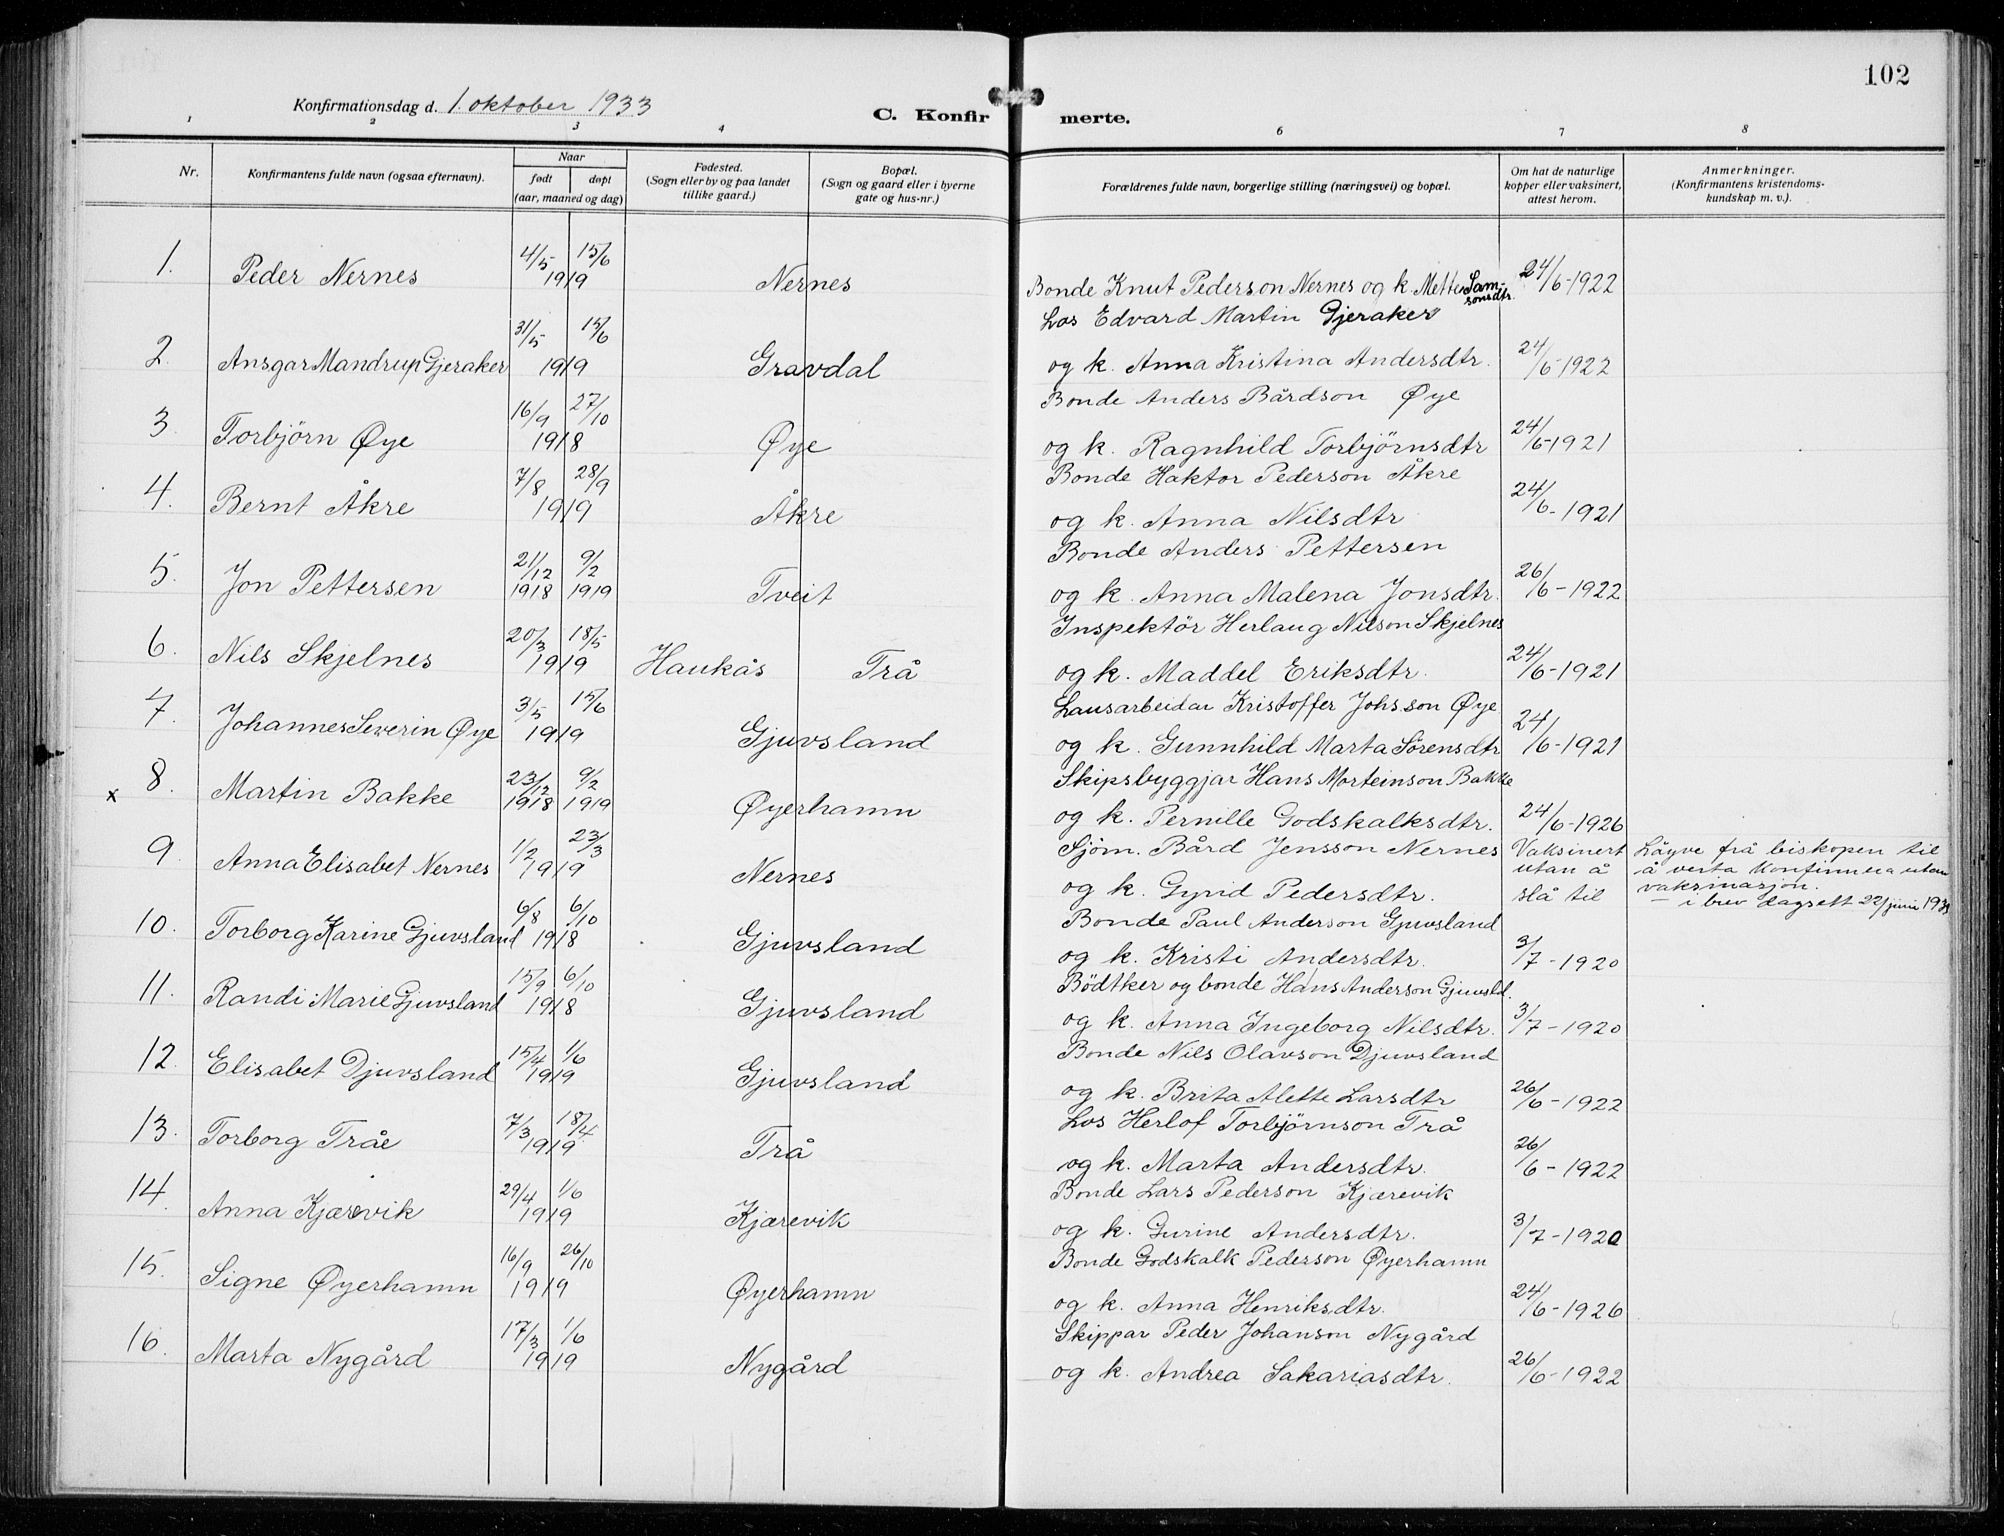 102
Konfirmationsdag d. 1. oktober 1933
C. Konfirmerte.
1 2 3 4 6 7 8
Nr.
Konfirmantens fulde navn (ogsaa efternavn).
Naar
født døpt
(aar, maaned og dag)
Fødested.
(Sogn eller by og paa landet
tillike gaard.)
Bopæl.
(Sogn og gaard eller i byerne
gate og hus-nr.)
Forældrenes fulde navn, borgerlige stilling (næringsvei) og bopæl.
Om hat de naturlige
kopper eller vaksinert,
attest herom.
Anmerkninger.
(Konfirmantens kristendoms-
kundskap m. v.).
1. Peder Nernes 4/5 15/6 1919 Nernes
Bonde Knut Pederson Nernes og k. Mette Sam-
sonsdtr. 24/6-1922
2. Ansgar Mandrup Gjeraker 31/5 15/6 1919 Gravdal
Los Edvard Martin Gjeraker
og k. Anna Kristina Andersdtr. 24/6-1922
3. Torbjörn Øye 16/9 27/10 1918 Øye
Bonde Anders Bårdson Øye
og k. Ragnhild Torbjörnsdtr 24/6-1921
4. Bernt Åkre 7/8 28/9 1919 Åkre
Bonde Haktor Pederson Åkre
og k. Anna Nilsdtr 24/6-1921
5. Jon Pettersen 21/12 1918 9/2 1919 Tveit
Bonde Anders Pettersen
og k. Anna Malena Jonsdtr. 26/6-1922
6. Nils Skjelnes 20/3 18/5 1919 Haukås Trå
Inspektör Herlaug Nilson Skjelnes
og k. Maddel Eriksdtr. 24/6-1921
7. Johannes Severin Øye 3/5 15/6 1919 Gjuvsland
Lausarbeidar Kristoffer Johsson Øye
og k. Gunnhild Marta Sörensdtr 24/6-1921
x 8. Martin Bakke 23/12 1918 9/2 1919 Øyerhamn
Skipsbyggjar Hans Morteinson Bakke
og k. Pernille Godskalksdtr. 24/6-1926
9. Anna Elisabet Nernes 1/2 23/3 1919 Nernes
Sjöm. Bård Jensson Nernes
og k. Gyrid Pedersdtr.
Vaksinert
utan å
slå til
Løyve frå biskopen til
å verta konfirmera utan
vaksinasjon.
— i brev dagsett 22/juni 1933
10. Torborg Karine Gjuvsland 6/8 6/10 1918 Gjuvsland
Bonde Paul Anderson Gjuvsland
og k. Kristi Andersdtr. 3/7-1920
11. Randi Marie Gjuvsland 15/9 6/10 1918 Gjuvsland
Bödtker og bonde Hans Anderson Gjuvsld.
og k. Anna Ingeborg Nilsdtr. 3/7-1920
12. Elisabet Djuvsland 15/4 1/6 1919 Gjuvsland
Bonde Nils Olavson Djuvsland
og k. Brita Alette Larsdtr 26/6-1922
13. Torborg Tråe 7/3 18/4 1919 Trå
Los Herlof Torbjörnson Trå
og k. Marta Andersdtr. 26/6-1922
14. Anna Kjærevik 29/4 1/6 1919 Kjærevik
Bonde Lars Pederson Kjærevik
og k. Gurine Andersdtr. 3/7-1920
15. Signe Øyerhamn 16/9 26/10 1919 Øyerhamn
Bonde Godskalk Pederson Øyerhamn
og k. Anna Henriksdtr. 24/6-1926
16. Marta Nygård 17/3 1/6 1919 Nygård
Skippar Peder Johanson Nygård
og k. Andrea Sakariasdtr. 26/6-1922